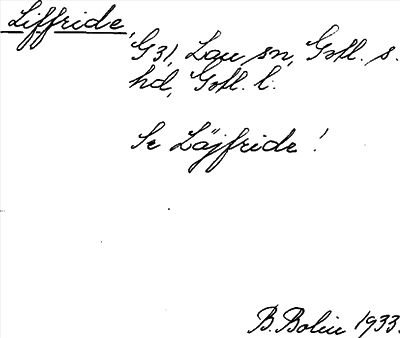 Liffride,
G31, Lau sn, Gotl. s.
hd, Gotl. l.
Se Läjfride!
B. Bolin 1933.